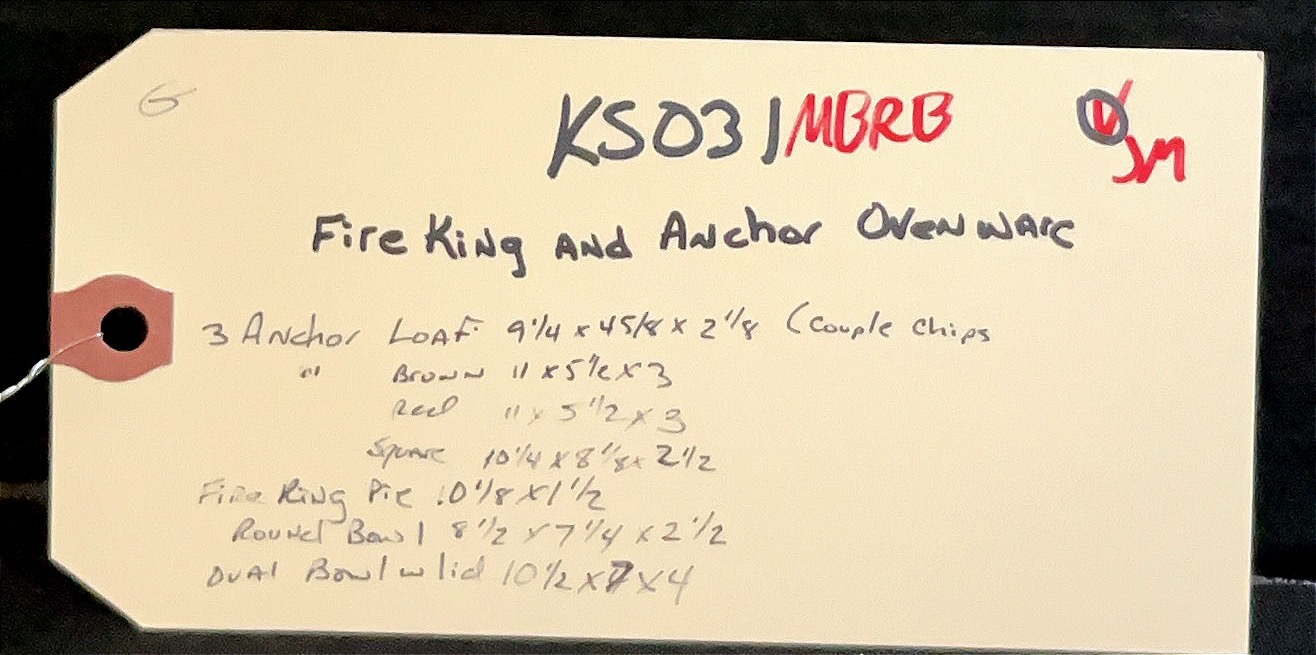 G
KS031 MBRB V JM
Fire King AND Anchor OvenWare
3 Anchor Loaf 9 1/4 x 4 5/8 x 2 1/8 (Couple Chips
" Brown 11 x 5 1/2 x 3
Red 11 x 5 1/2 x 3
Square 10 1/4 x 8 1/8 x 2 1/2
Fire King Pie 10 1/8 x 1 1/2
Round Bowl 8 1/2 x 7 1/4 x 2 1/2
Oval Bowl w lid 10 1/2 x 7 x 4